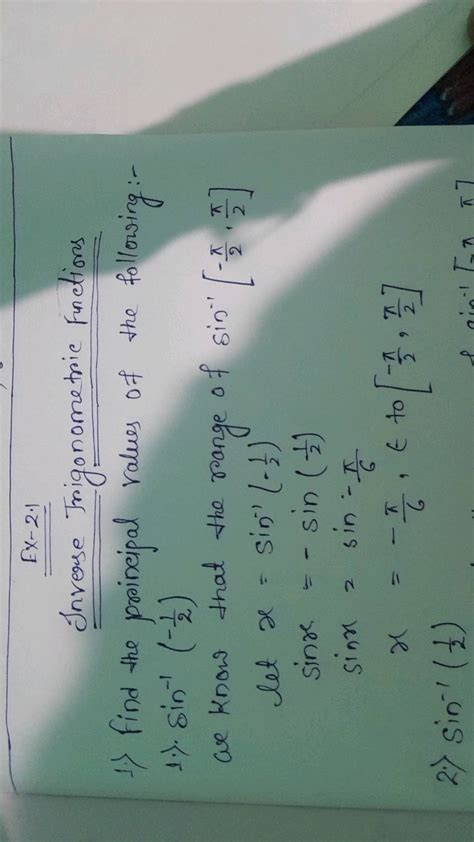 Ex-2.1
Inverse Trigonometric Functions
1.) Find the principal values of the following:-
1.). sin⁻¹ (-1/2)
we know that the range of sin⁻¹ [-π/2, π/2]
let x = sin⁻¹ (-1/2)
sinx = - sin (1/2)
sinx = sin - π/6
x = - π/6, ∈ to [-π/2, π/2]
2.) sin⁻¹ (1/2)